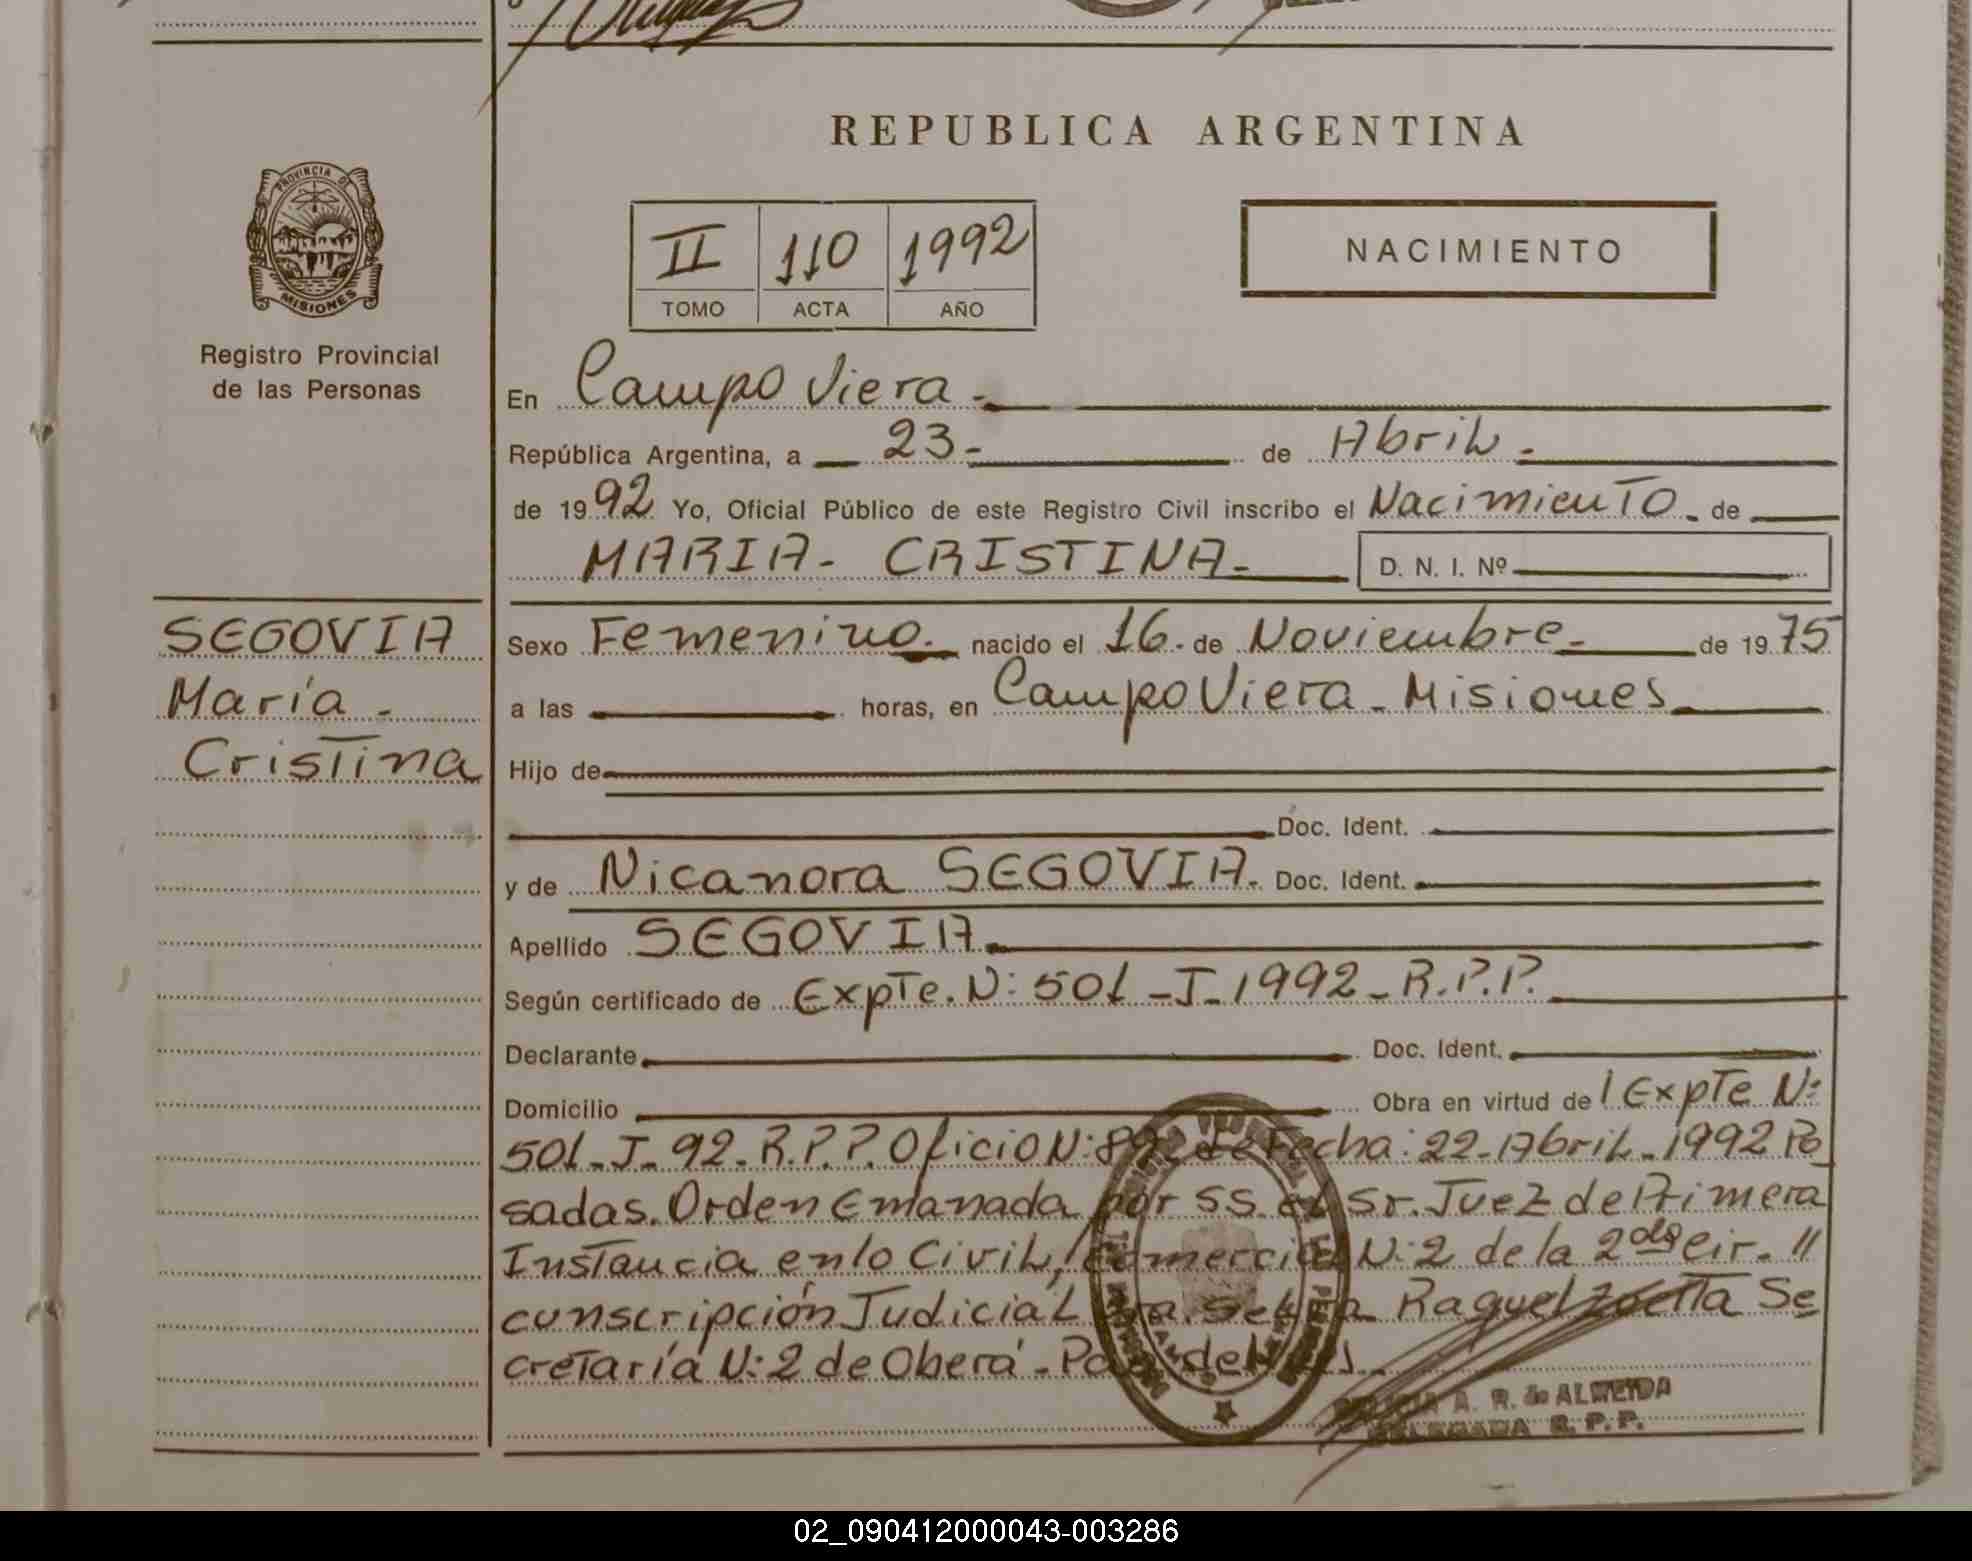 REPUBLICA ARGENTINA
PROVINCIA DE
MISIONES
Registro Provincial
de las Personas
II 110 1992
TOMO ACTA AÑO
NACIMIENTO
En Campo Viera -
República Argentina, a 23- de Abril -
de 1992 Yo, Oficial Público de este Registro Civil inscribo el Nacimiento - de
MARIA- CRISTINA- D. N. I. Nº
SEGOVIA
María -
Cristina
Sexo Femenino. nacido el 16. de Noviembre - de 1975
a las horas, en Campo Viera - Misiones
Hijo de
Doc. Ident.
y de Nicanora SEGOVIA. Doc. Ident.
Apellido SEGOVIA
Según certificado de Expte. N: 501 - J - 1992 - R.P.P.
Declarante Doc. Ident.
Domicilio Obra en virtud de / Expte N:
501 - J - 92 - R.P.P. Oficio N: 892 de Fecha: 22 - Abril - 1992 Po
sadas. Orden Emanada por SS. el Sr. Juez de Primera
Instancia en lo Civil, Comercial N: 2 de la 2da cir- //
cunscripción Judicial Raquel Zoetta Se
cretaría N: 2 de Oberá -
A. R. de ALMEIDA
DELEGADA R. P. P.
02_090412000043-003286